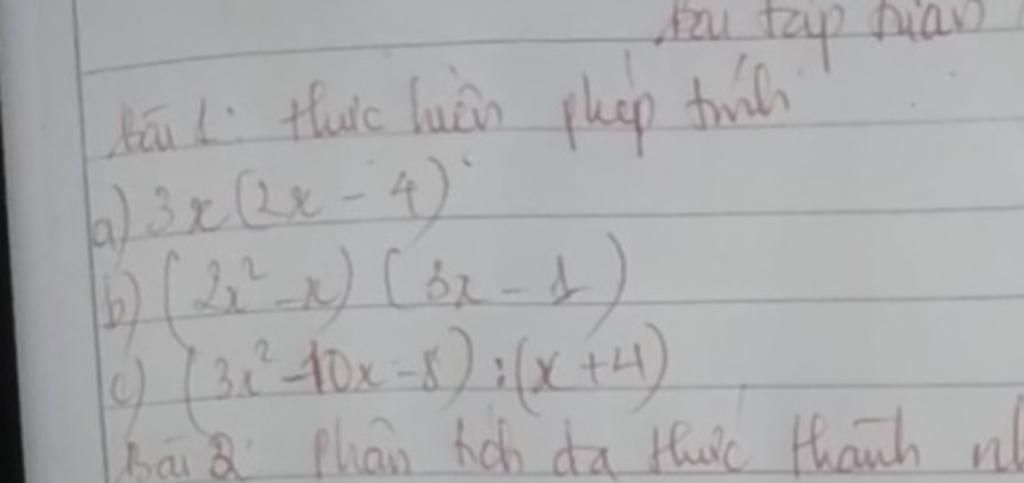 Bài tập
Bài 1: thực hiện phép tính
a) 3x(2x - 4)
b) (2x² - x) (3x - 1)
c) (3x² - 10x - 8) : (x + 4)
Bài 2: Phân tích đa thức thành